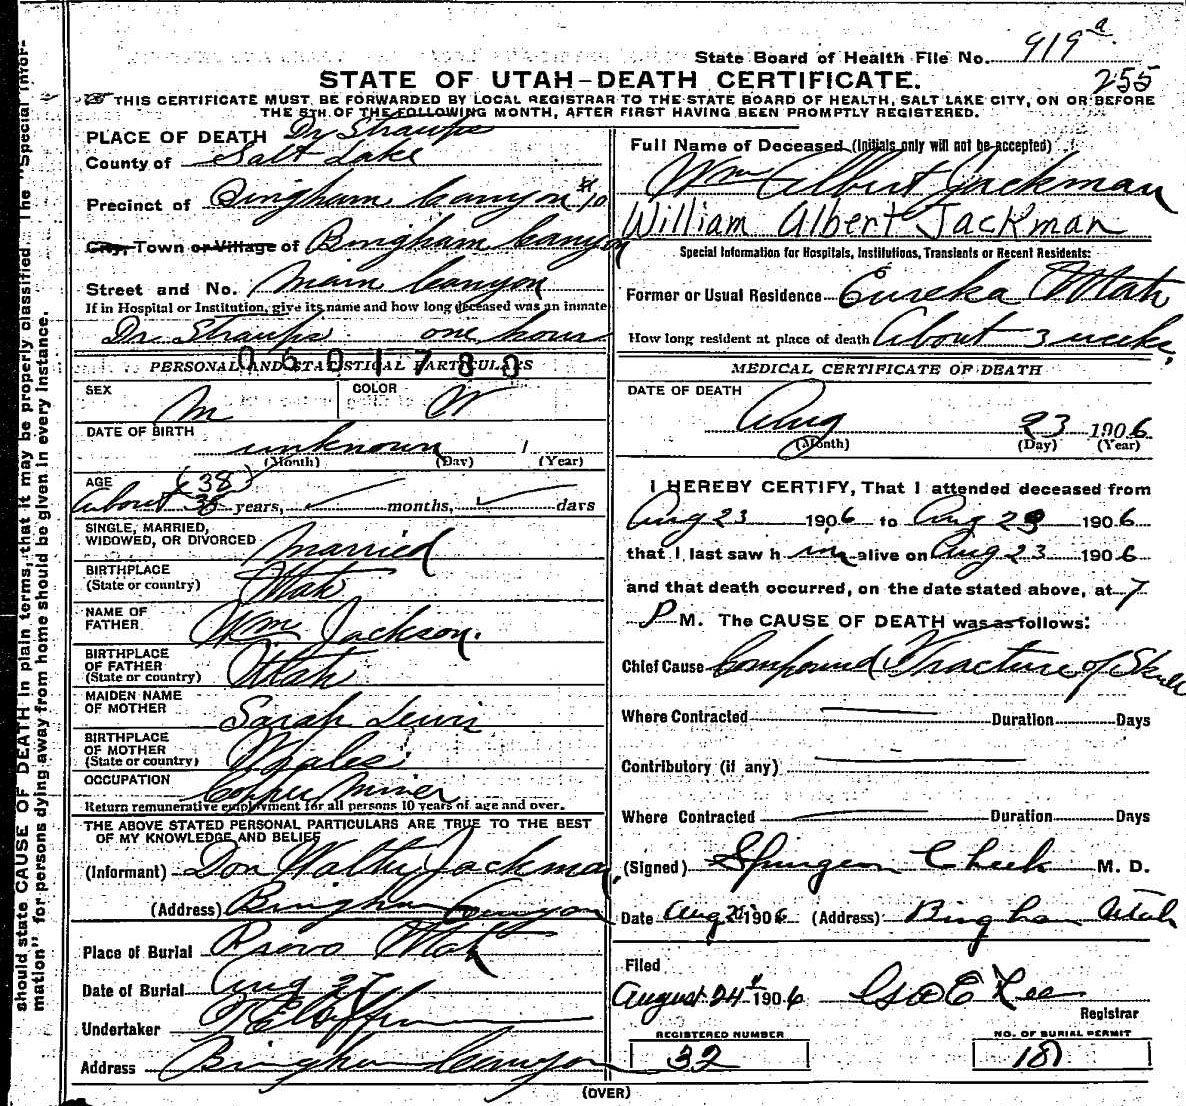 State Board of Health File No. 919 a
255
STATE OF UTAH-DEATH CERTIFICATE.
THIS CERTIFICATE MUST BE FORWARDED BY LOCAL REGISTRAR TO THE STATE BOARD OF HEALTH, SALT LAKE CITY, ON OR BEFORE
THE 5TH OF THE FOLLOWING MONTH, AFTER FIRST HAVING BEEN PROMPTLY REGISTERED.
PLACE OF DEATH Dr Straups
County of Salt Lake
Precinct of Bingham Canyon #10
City, Town or Village of Bingham Canyon
Street and No. Main Canyon
If in Hospital or Institution, give its name and how long deceased was an inmate
Dr. Straups one hour
0601780
PERSONAL AND STATISTICAL PARTICULARS
SEX M COLOR W
DATE OF BIRTH unknown 1
(Month) (Day) (Year)
AGE (38)
About 38 years, months, days
SINGLE, MARRIED,
WIDOWED, OR DIVORCED Married
BIRTHPLACE
(State or country) Utah
NAME OF
FATHER Wm Jackson.
BIRTHPLACE
OF FATHER
(State or country) Utah
MAIDEN NAME
OF MOTHER Sarah Lewis
BIRTHPLACE
OF MOTHER
(State or country) Whales
OCCUPATION Copper Miner
Return remunerative employment for all persons 10 years of age and over.
THE ABOVE STATED PERSONAL PARTICULARS ARE TRUE TO THE BEST
OF MY KNOWLEDGE AND BELIEF
(Informant) Don Walter Jackman.
(Address) Bingham Canyon
Place of Burial Provo Utah
Date of Burial Aug 27
Undertaker
Address Bingham Canyon
Full Name of Deceased (Initials only will not be accepted)
Wm Albert Jackman
William Albert Jackman
Special Information for Hospitals, Institutions, Transients or Recent Residents:
Former or Usual Residence Eureka Utah
How long resident at place of death About 3 weeks.
MEDICAL CERTIFICATE OF DEATH
DATE OF DEATH
Aug 23 1906
(Month) (Day) (Year)
I HEREBY CERTIFY, That I attended deceased from
Aug 23 1906 to Aug 23 1906
that I last saw h im alive on Aug 23 1906
and that death occurred, on the date stated above, at 7
P M. The CAUSE OF DEATH was as follows:
Chief Cause Compound Fracture of Skull
Where Contracted Duration Days
Contributory (if any)
Where Contracted Duration Days
(Signed) Spurgeon Cheek M. D.
Date Aug 1906 (Address) Bingham Utah
Filed
August 24th 1906 Geo E Lee
Registrar
REGISTERED NUMBER
32
NO. OF BURIAL PERMIT
181
(OVER)
should state CAUSE OF DEATH in plain terms, that it may be properly classified. The "Special Infor-
mation" for persons dying away from home should be given in every instance.